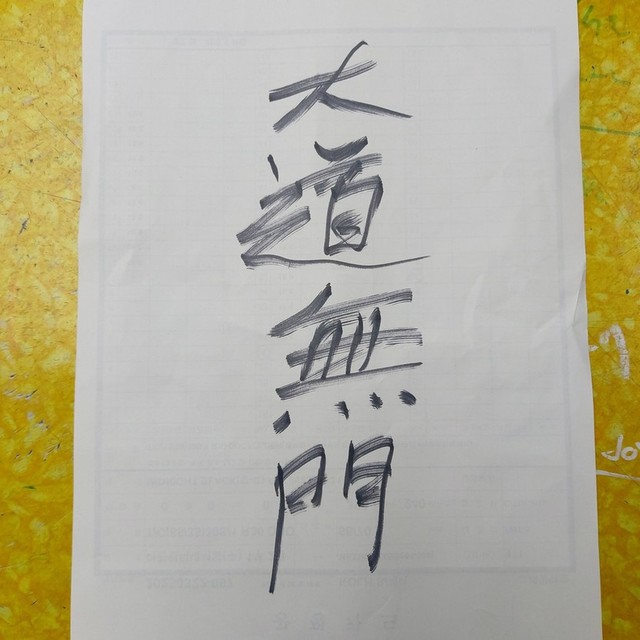 大道無門